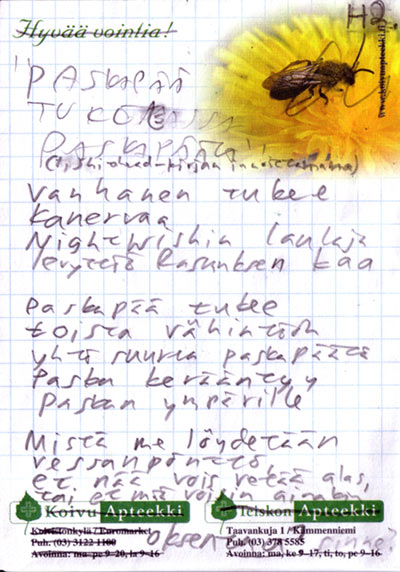 Hyvää vointia!
H2.
www.koivuapteekki.fi
"PASKAPÄÄ
TUKOASSA
PASKAPÄÄTÄ"
(Shithead-kirjan innoittamana)
Vanhanen tukee
Kanervaa
Nightwishin laulaja
levyttää Rasmuksen kaa
Paskapää tukee
toista vähintään
yhtä suurta paskapäätä
Paska kerääntyy
Paskan ympärille
Mistä me löydetään
vessanpönttö,
et nää vois vetää alas,
tai et mä voisin ainakin
oksentaa sinne?
Koivu Apteekki
Koivistonkylä / Euromarket
Puh. (03) 3122 1100
Avoinna: ma-pe 9-20, la 9-16
Teiskon Apteekki
Taavankuja 1 / Kämmenniemi
Puh. (03) 378 5585
Avoinna: ma, ke 9-17, ti, to, pe 9-16